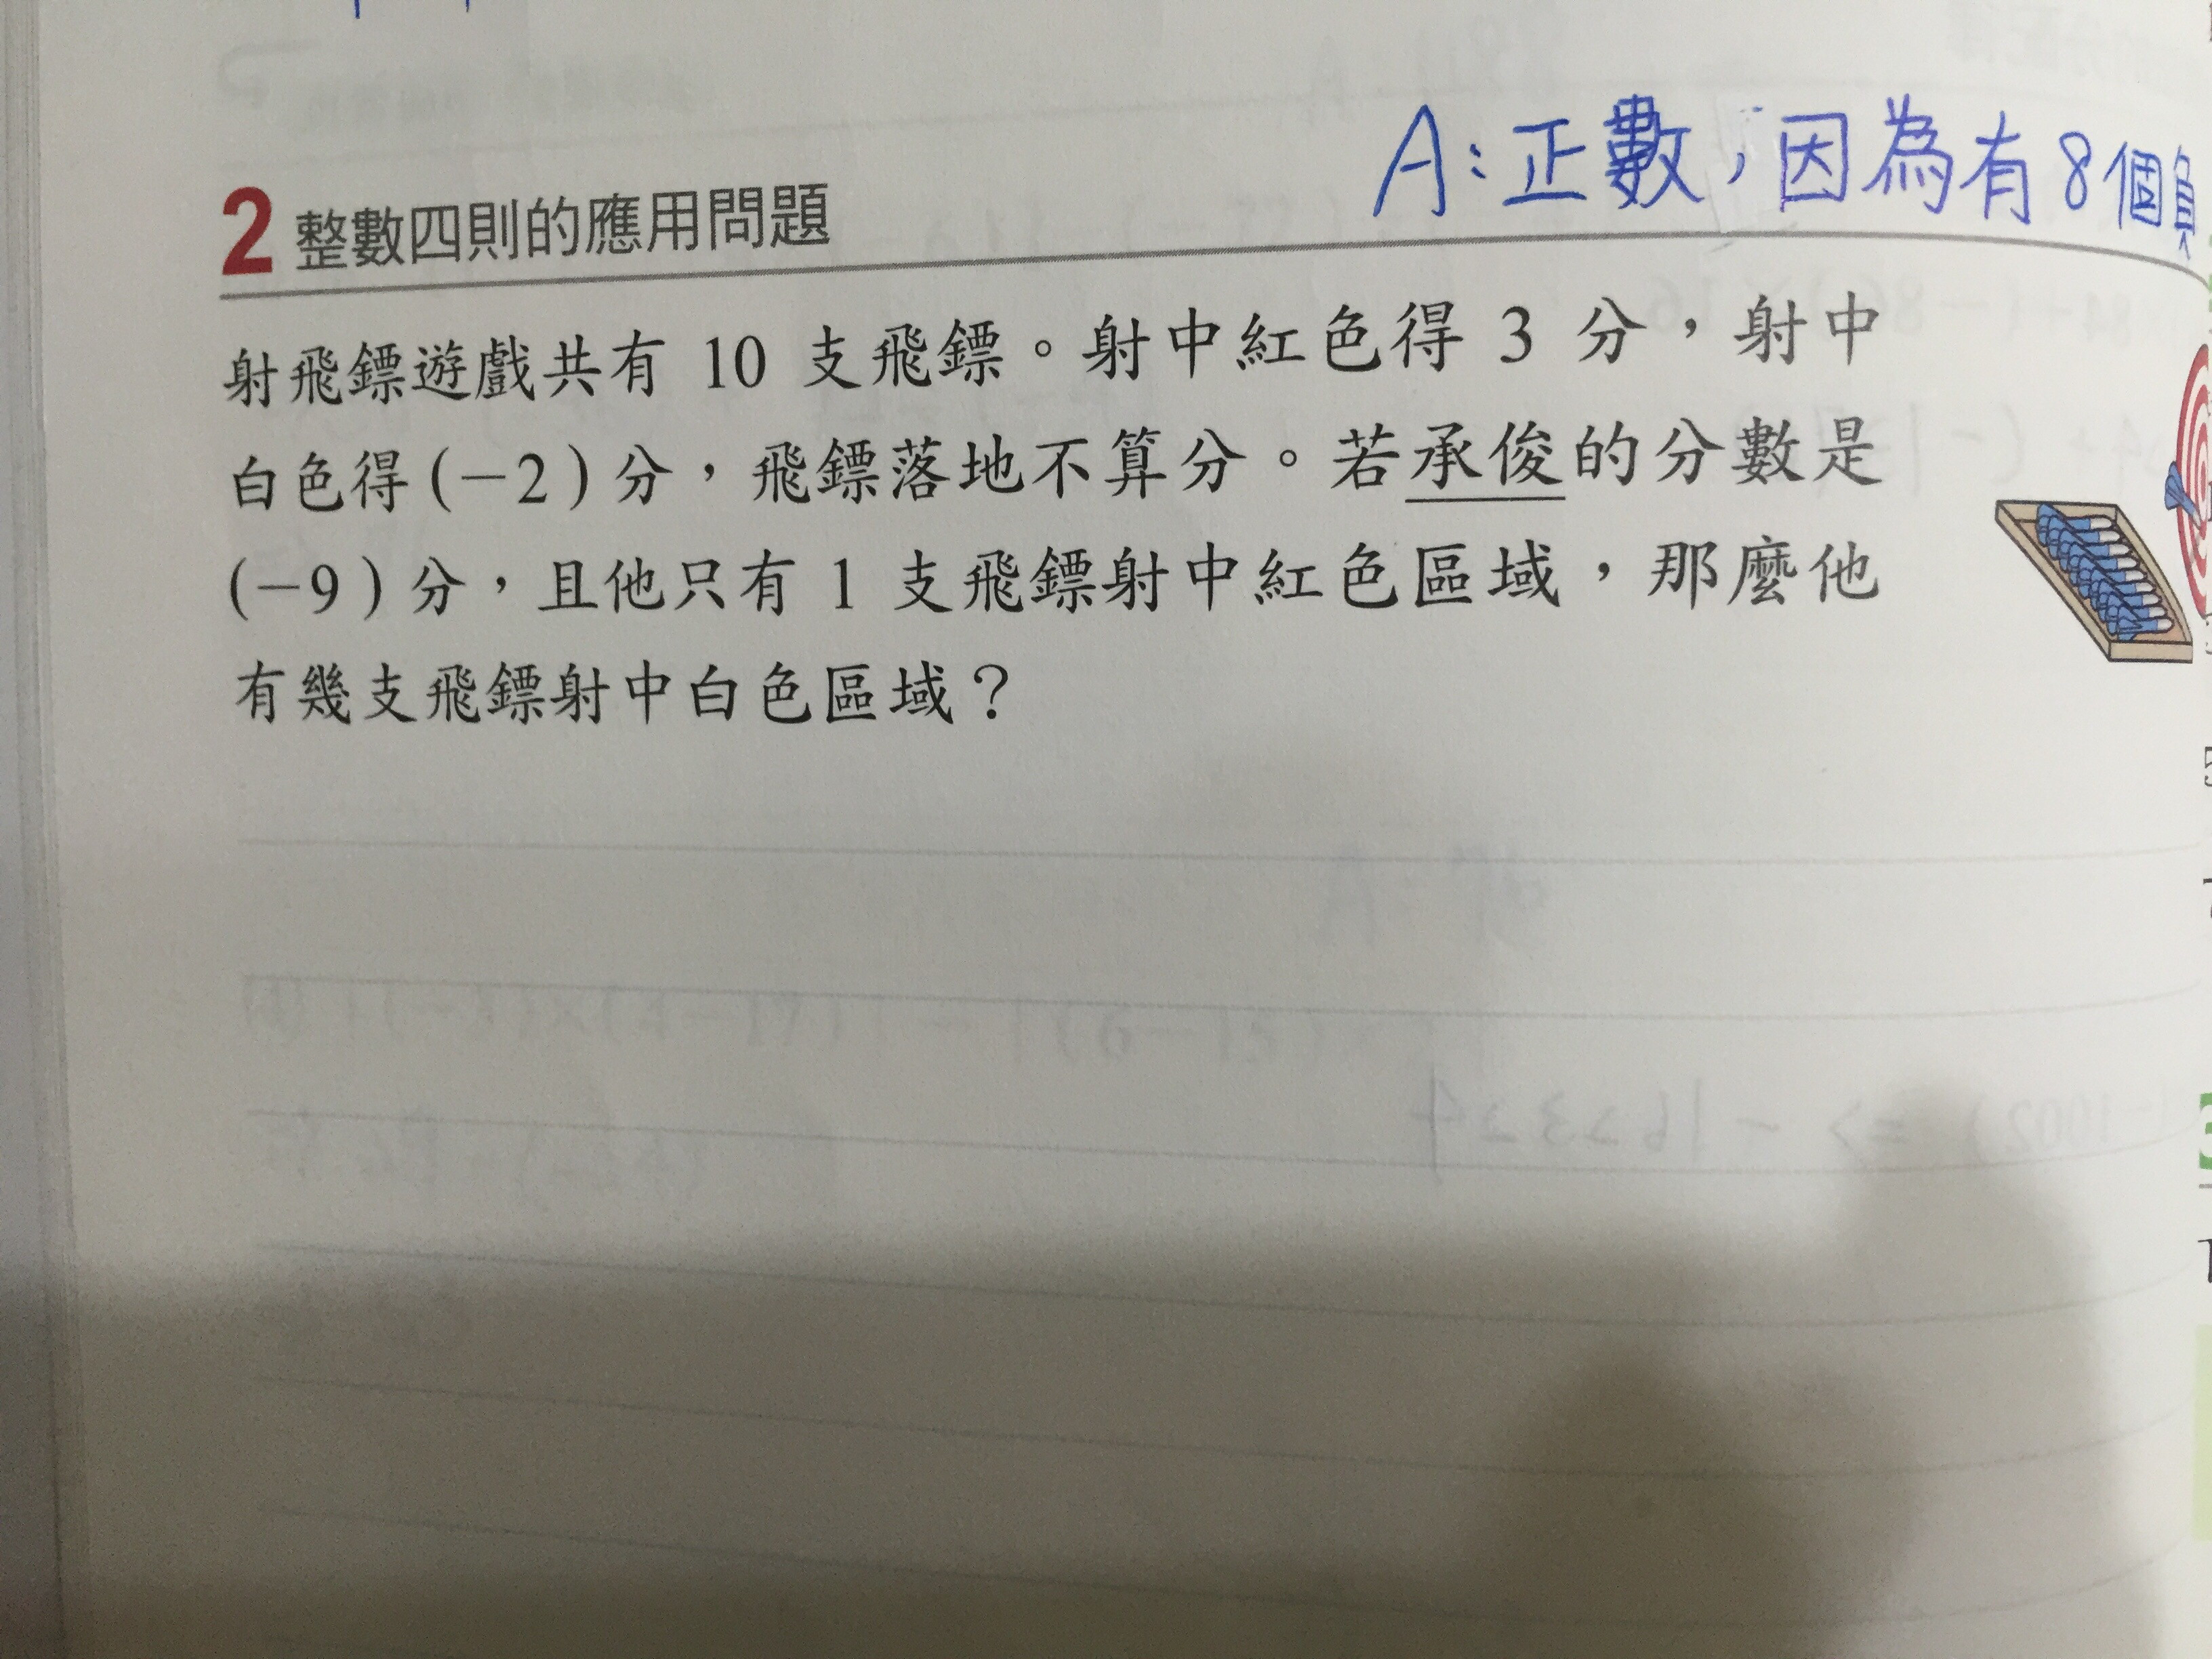 A：正數，因為有8個負
2 整數四則的應用問題
射飛鏢遊戲共有 10 支飛鏢。射中紅色得 3 分，射中
白色得(－2)分，飛鏢落地不算分。若承俊的分數是
(－9)分，且他只有 1 支飛鏢射中紅色區域，那麼他
有幾支飛鏢射中白色區域？